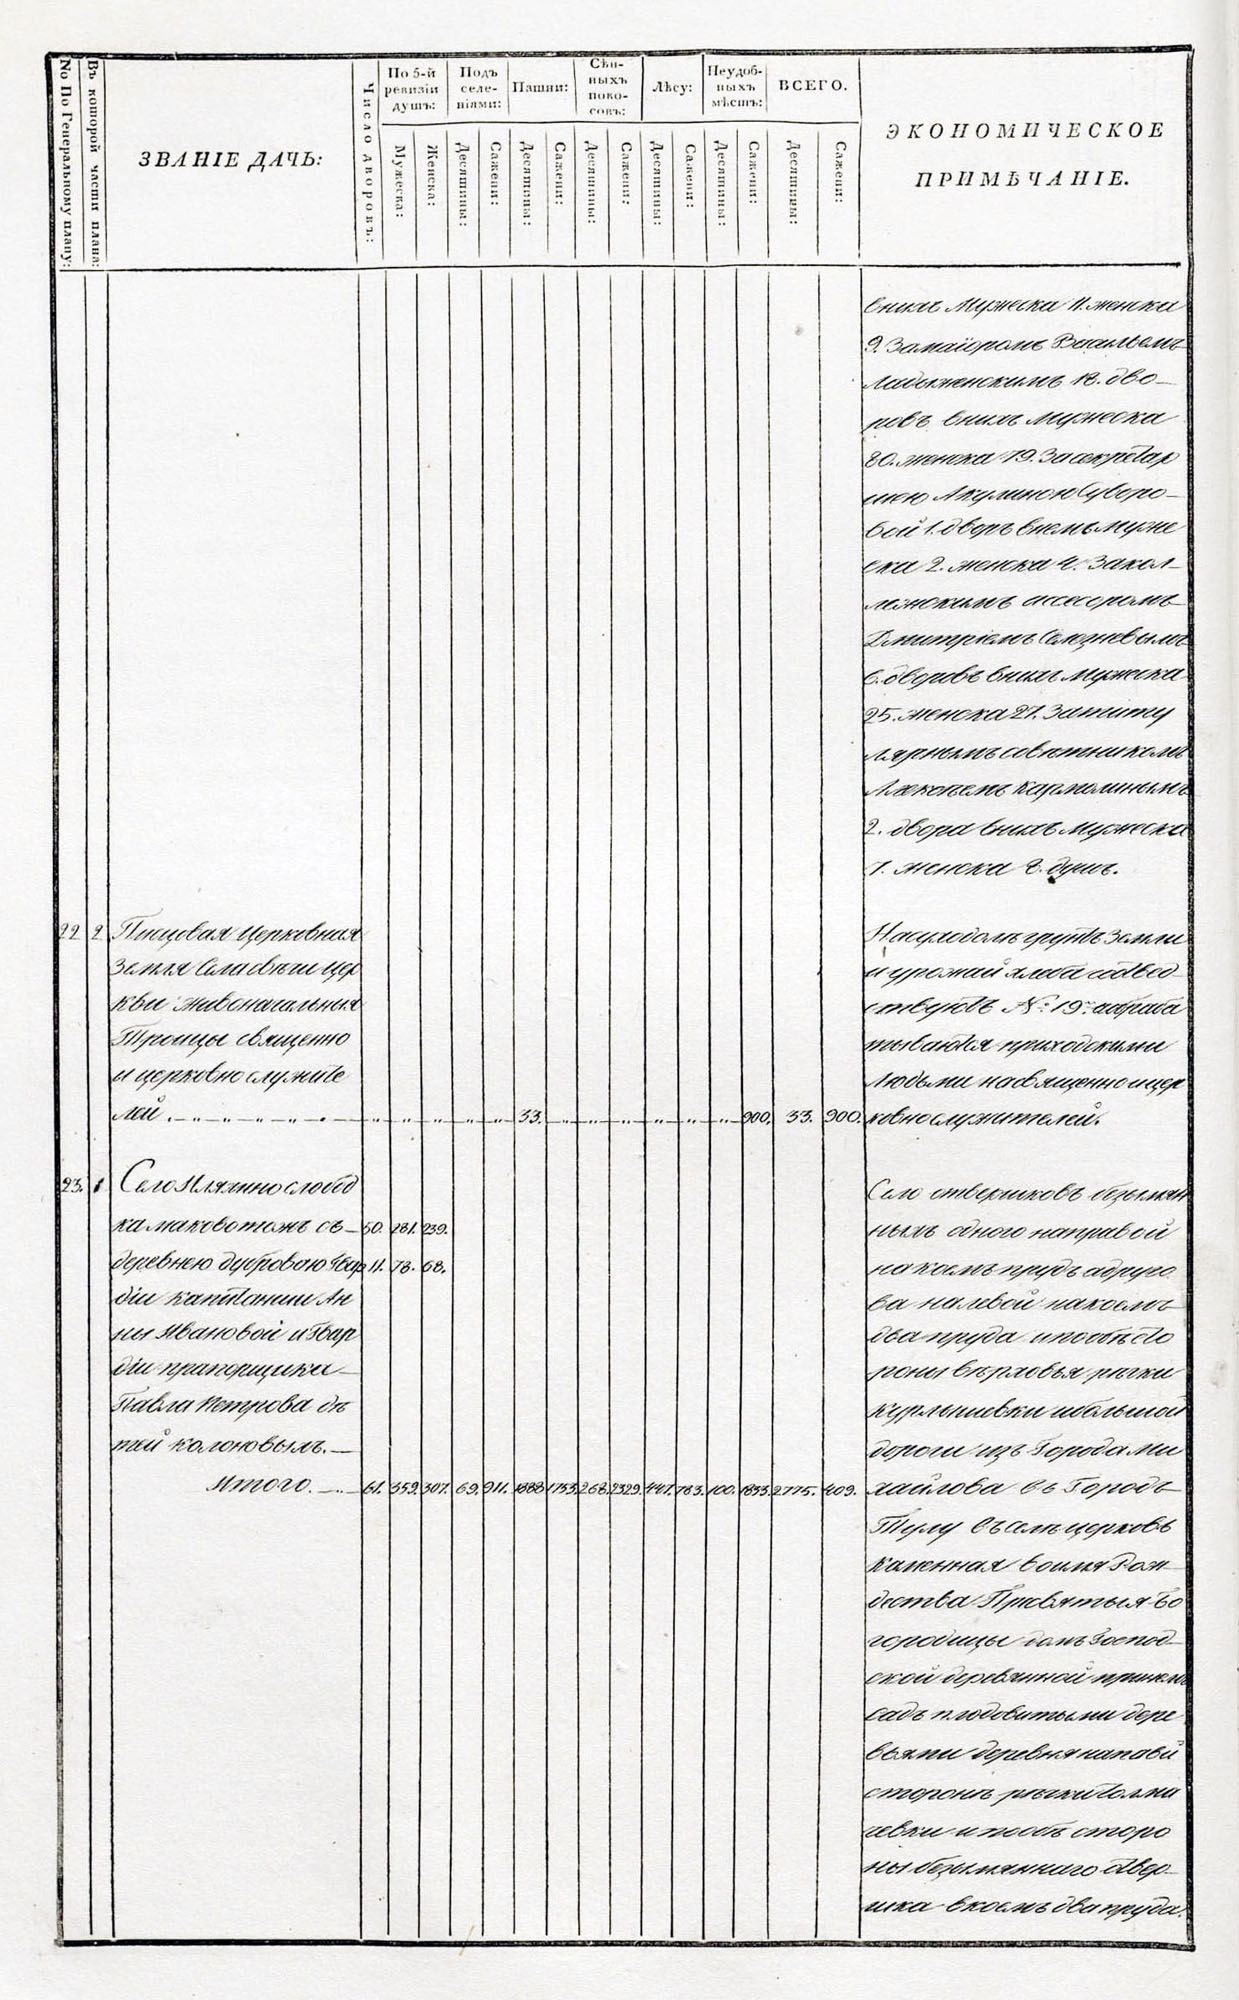 No По Генеральному плану:
Въ которой части плана:
ЗВАНІЕ ДАЧЬ:
Число дворовъ:
По 5-й ревизіи душъ:
Мужеска:
Женска:
Подъ селеніями:
Десятины:
Сажени:
Пашни:
Десятины:
Сажени:
Сѣнныхъ покосовъ:
Десятины:
Сажени:
Лѣсу:
Десятины:
Сажени:
Неудобныхъ мѣстъ:
Десятины:
Сажени:
ВСЕГО.
Десятины:
Сажени:
ЭКОНОМИЧЕСКОЕ
ПРИМѢЧАНІЕ.
внихъ Мужеска 11. женска
9. Замаіоромъ Васильемъ
Ладыженскимъ 18. дво-
ровъ внихъ мужеска
80. женска 79. Засекретар
шею Акулиною Суворо-
вой 1. дворъ внемъ муже
ска 2. женска 4. Закол-
лежскимъ ассесоромъ
Дмитріемъ Селезневымъ
6. дворовъ внихъ мужеска
25. женска 27. Затиту
лярнымъ совѣтникомъ
Алексѣемъ Кармалинымъ
2. двора внихъ мужеска
7. женска 8. душъ.
22 2 Писцовая церковная
земля Села свѣчи цер
кви живоначальныя
Троицы священно
и церковно служите
лей. 33. 900. 33. 900.
Насуходолъ грунтъ земли
и урожай хлѣба соотвѣт-
ствуетъ № 19му обраба
тывается приходскими
людьми насвященно ицер
ковнослужителей.
23. 1 Село Илялино слобод
ка маковотожъ съ 50. 281. 239.
деревнею дубровою Гвар 11. 78. 68.
діи капитанши Ан
ны Ивановой и Гвар
діи прапорщика
Павла Петрова дѣ
тей колоновымъ.
Итого. 61. 359. 307. 69. 911. 1888. 1753. 268. 2329. 447. 783. 100. 1833. 2775. 409.
Село отвершковъ безымян
ныхъ одного направой
на коемъ прудъ адруго
ва налевой накоемъ
два пруда ипообѣ сто
роны вѣрховья рѣчки
Курлышевки ибольшой
дороги изъ Города Ми
хайлова въ Городъ
Тулу въ селѣ церковь
каменная воимя Рож
дества Пресвятыя Бо
городицы домъ Господ-
ской деревянной принемъ
садъ плодовитыми дере
вьями деревня направой
сторонѣ рѣчки Толма
чевки и пообѣ сторо
ны безымяннаго отвер-
шка вкоемъ два пруда.